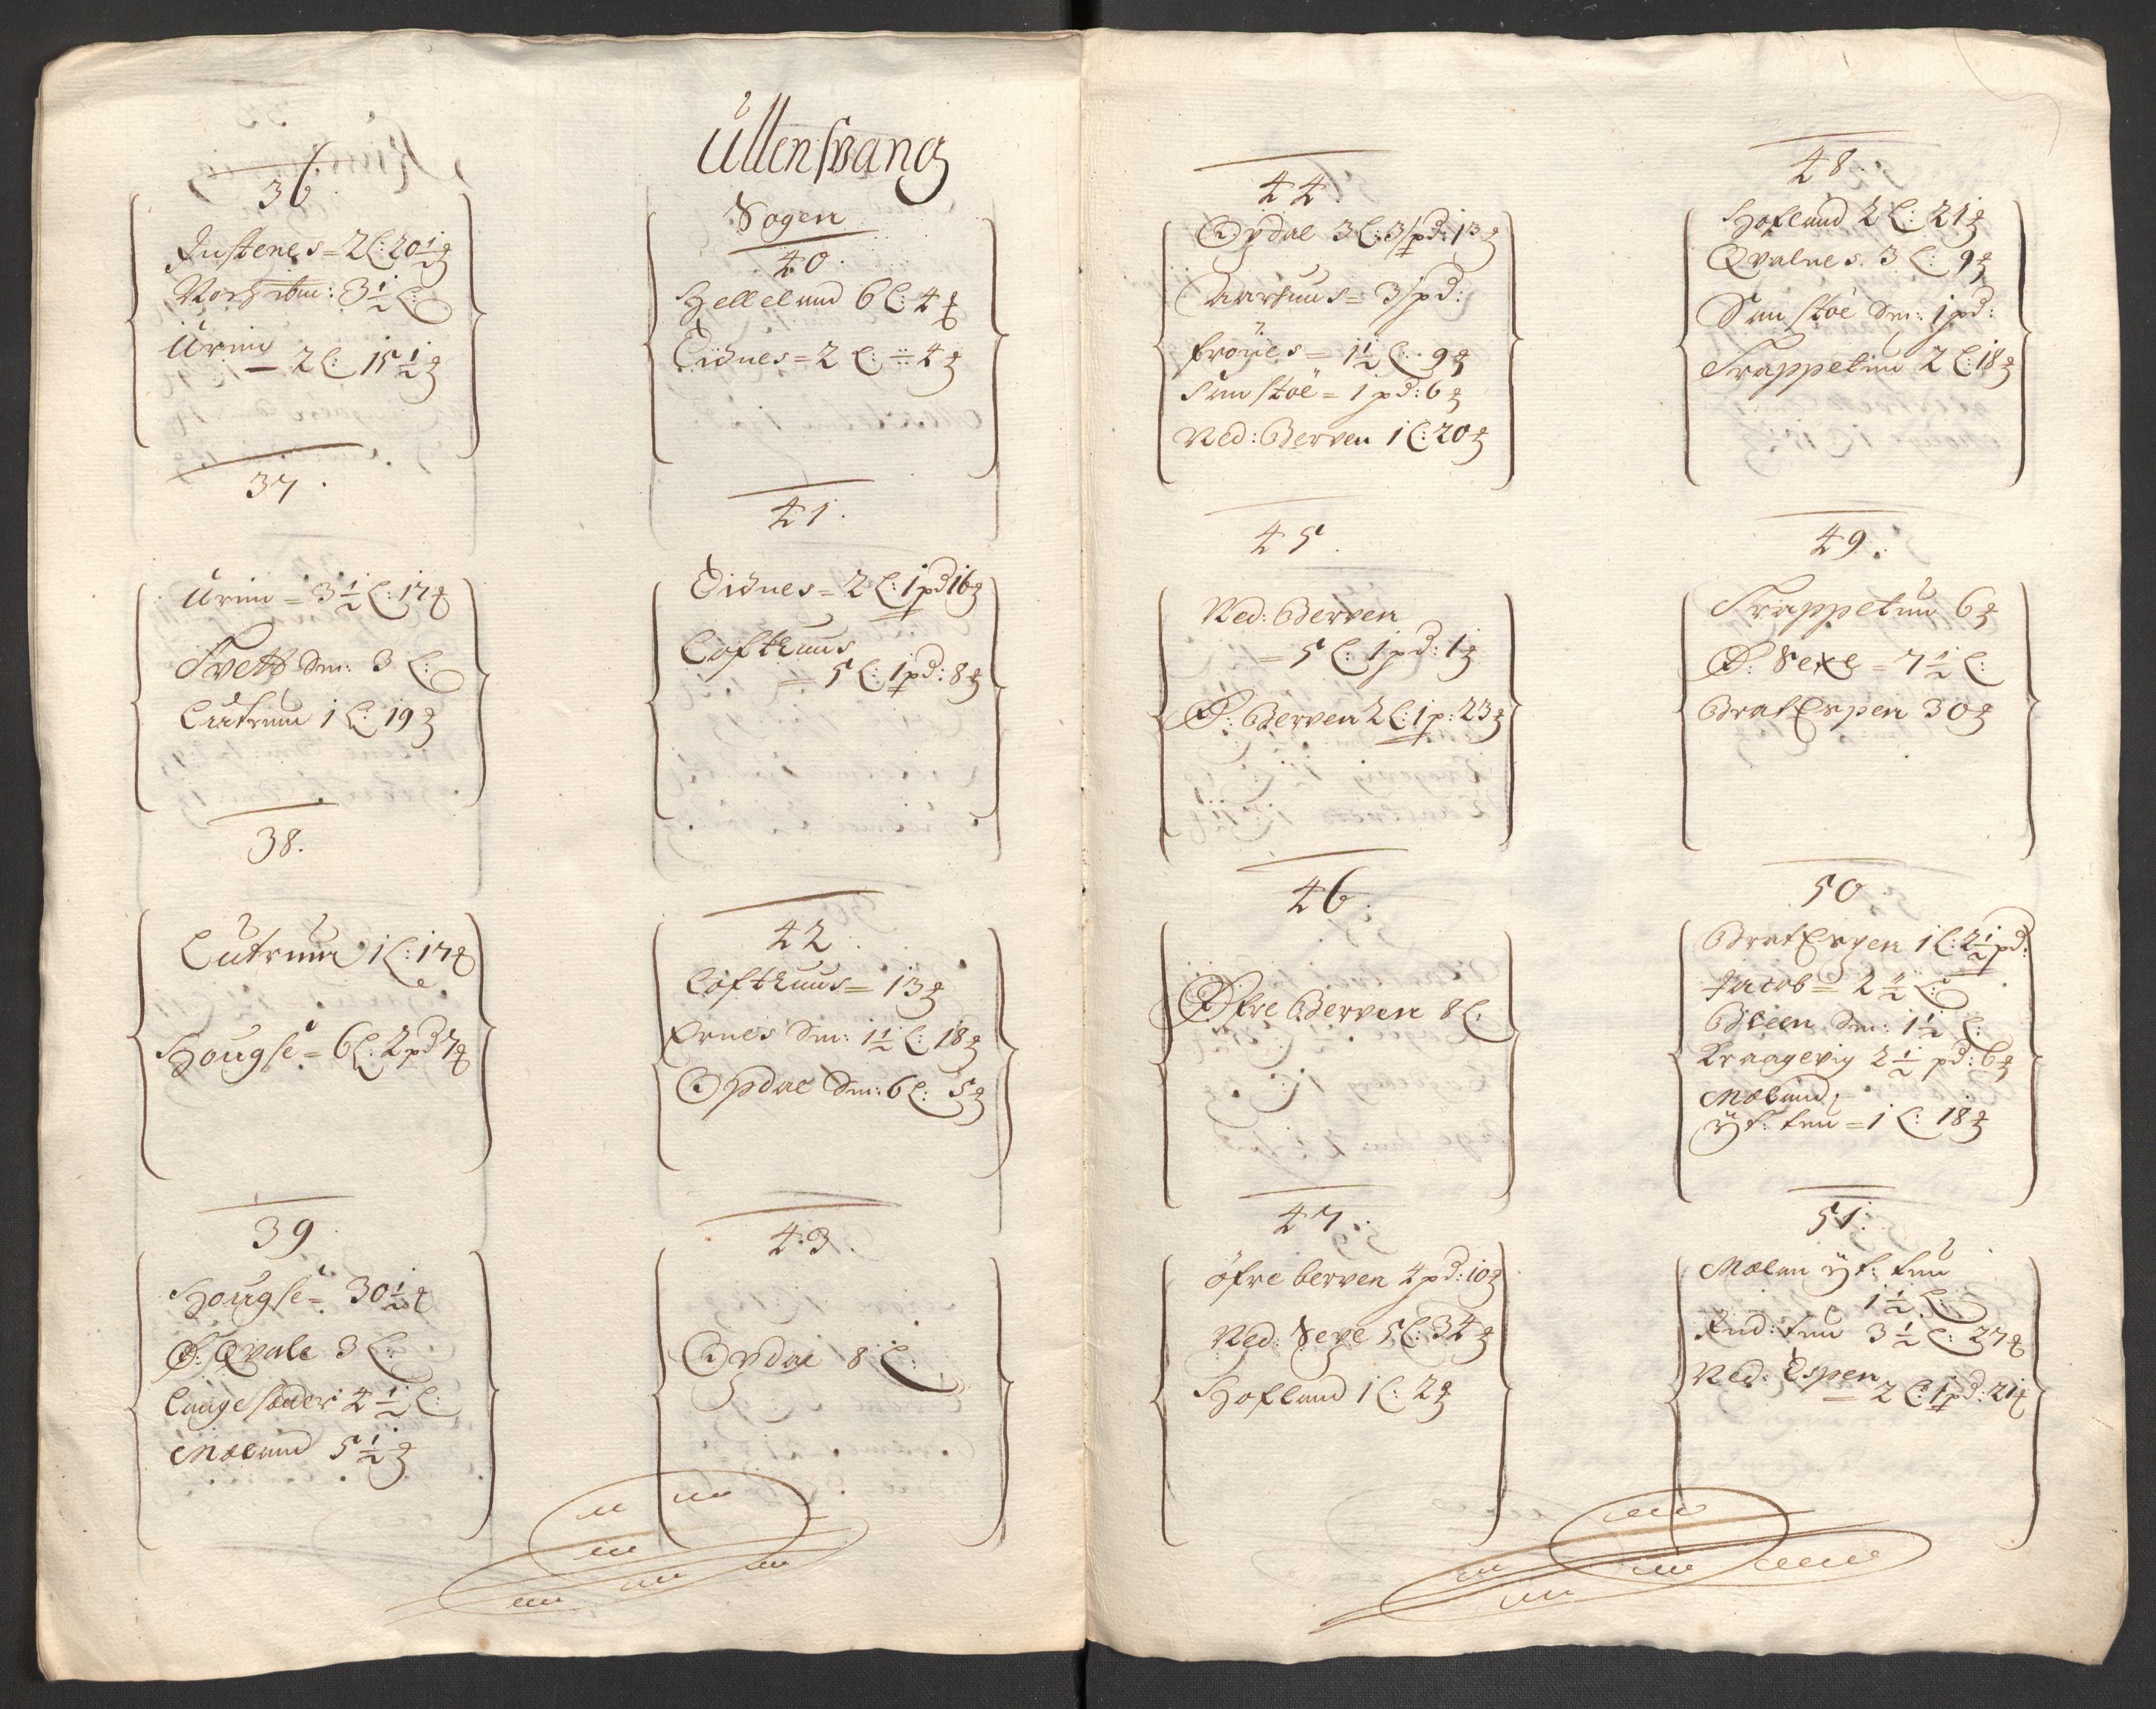 36.
Justenes = 2 L: 20½ ℔
3½ L:
Urim
— 2 L: 15½ ℔
37.
Urim = 3½ L: 17 ℔
Tvett Dm: 3 L:
Lutrum 1 L: 19 ℔
38.
Lutrum 1 L: 17 ℔
Hougse = 6 L: 2 pd 7 ℔
39.
Hougse = 30½ ℔
Ø: Qvale 3 L:
Langesæder 4½ L:
Mæland 5½ ℔
Ullensvang
Sogen
40.
Helleland 6 L: 4 ℔
Eidnes = 2 L: ÷ 4 ℔
41.
Eidnes = 2 L: 1 pd 16 ℔
Lofthuus
= 5 L: 1 pd: 8 ℔
42.
Lofthuus = 13 ℔
Ernes Dm: 1½ L: 18 ℔
Opdal Dm: 6 L: 5 ℔
43.
Opdal 8 L:
44.
Opdal 3 L: 3 pd: 13 ℔
Aarhuus = 3 pd:
Frönes = 1½ L: 9 ℔
Sunstöe = 1 pd: 6 ℔
Ned: Berven 1 L: 20 ℔
45.
Ned: Berven
= 5 L: 1 pd: 1 ℔
Ø: Berven 2 L: 1 p: 23 ℔
46.
Øfre Berven 8 L:
47.
öfre berven 4 pd: 10 ℔
Ned: Sexe 5 L: 34 ℔
Hofland 1 L: 2 ℔
48.
Hofland 2 L: 21 ℔
Qvalnes. 3 L: 9 ℔
Sunstöe Dm: 1 pd:
Trappetun 2 L: 18 ℔
49.
Trappetun 6 ℔
Ø: Sexe = 7½ L:
BratEspen 30 ℔
50
BratEspen 1 L: 2½ pd:
Jacob = 2½ L:
Bleen Dm: 1½ L:
Kraagevig 2½ pd: 6 ℔
Mæland,
ÿt: tun = 1 L: 18 ℔
51.
Mælan ÿt: tun
1½ L:
Ind: tun 3½ L: 27 ℔
Ned: Espen
= 2 L: 1 pd: 21 ℔